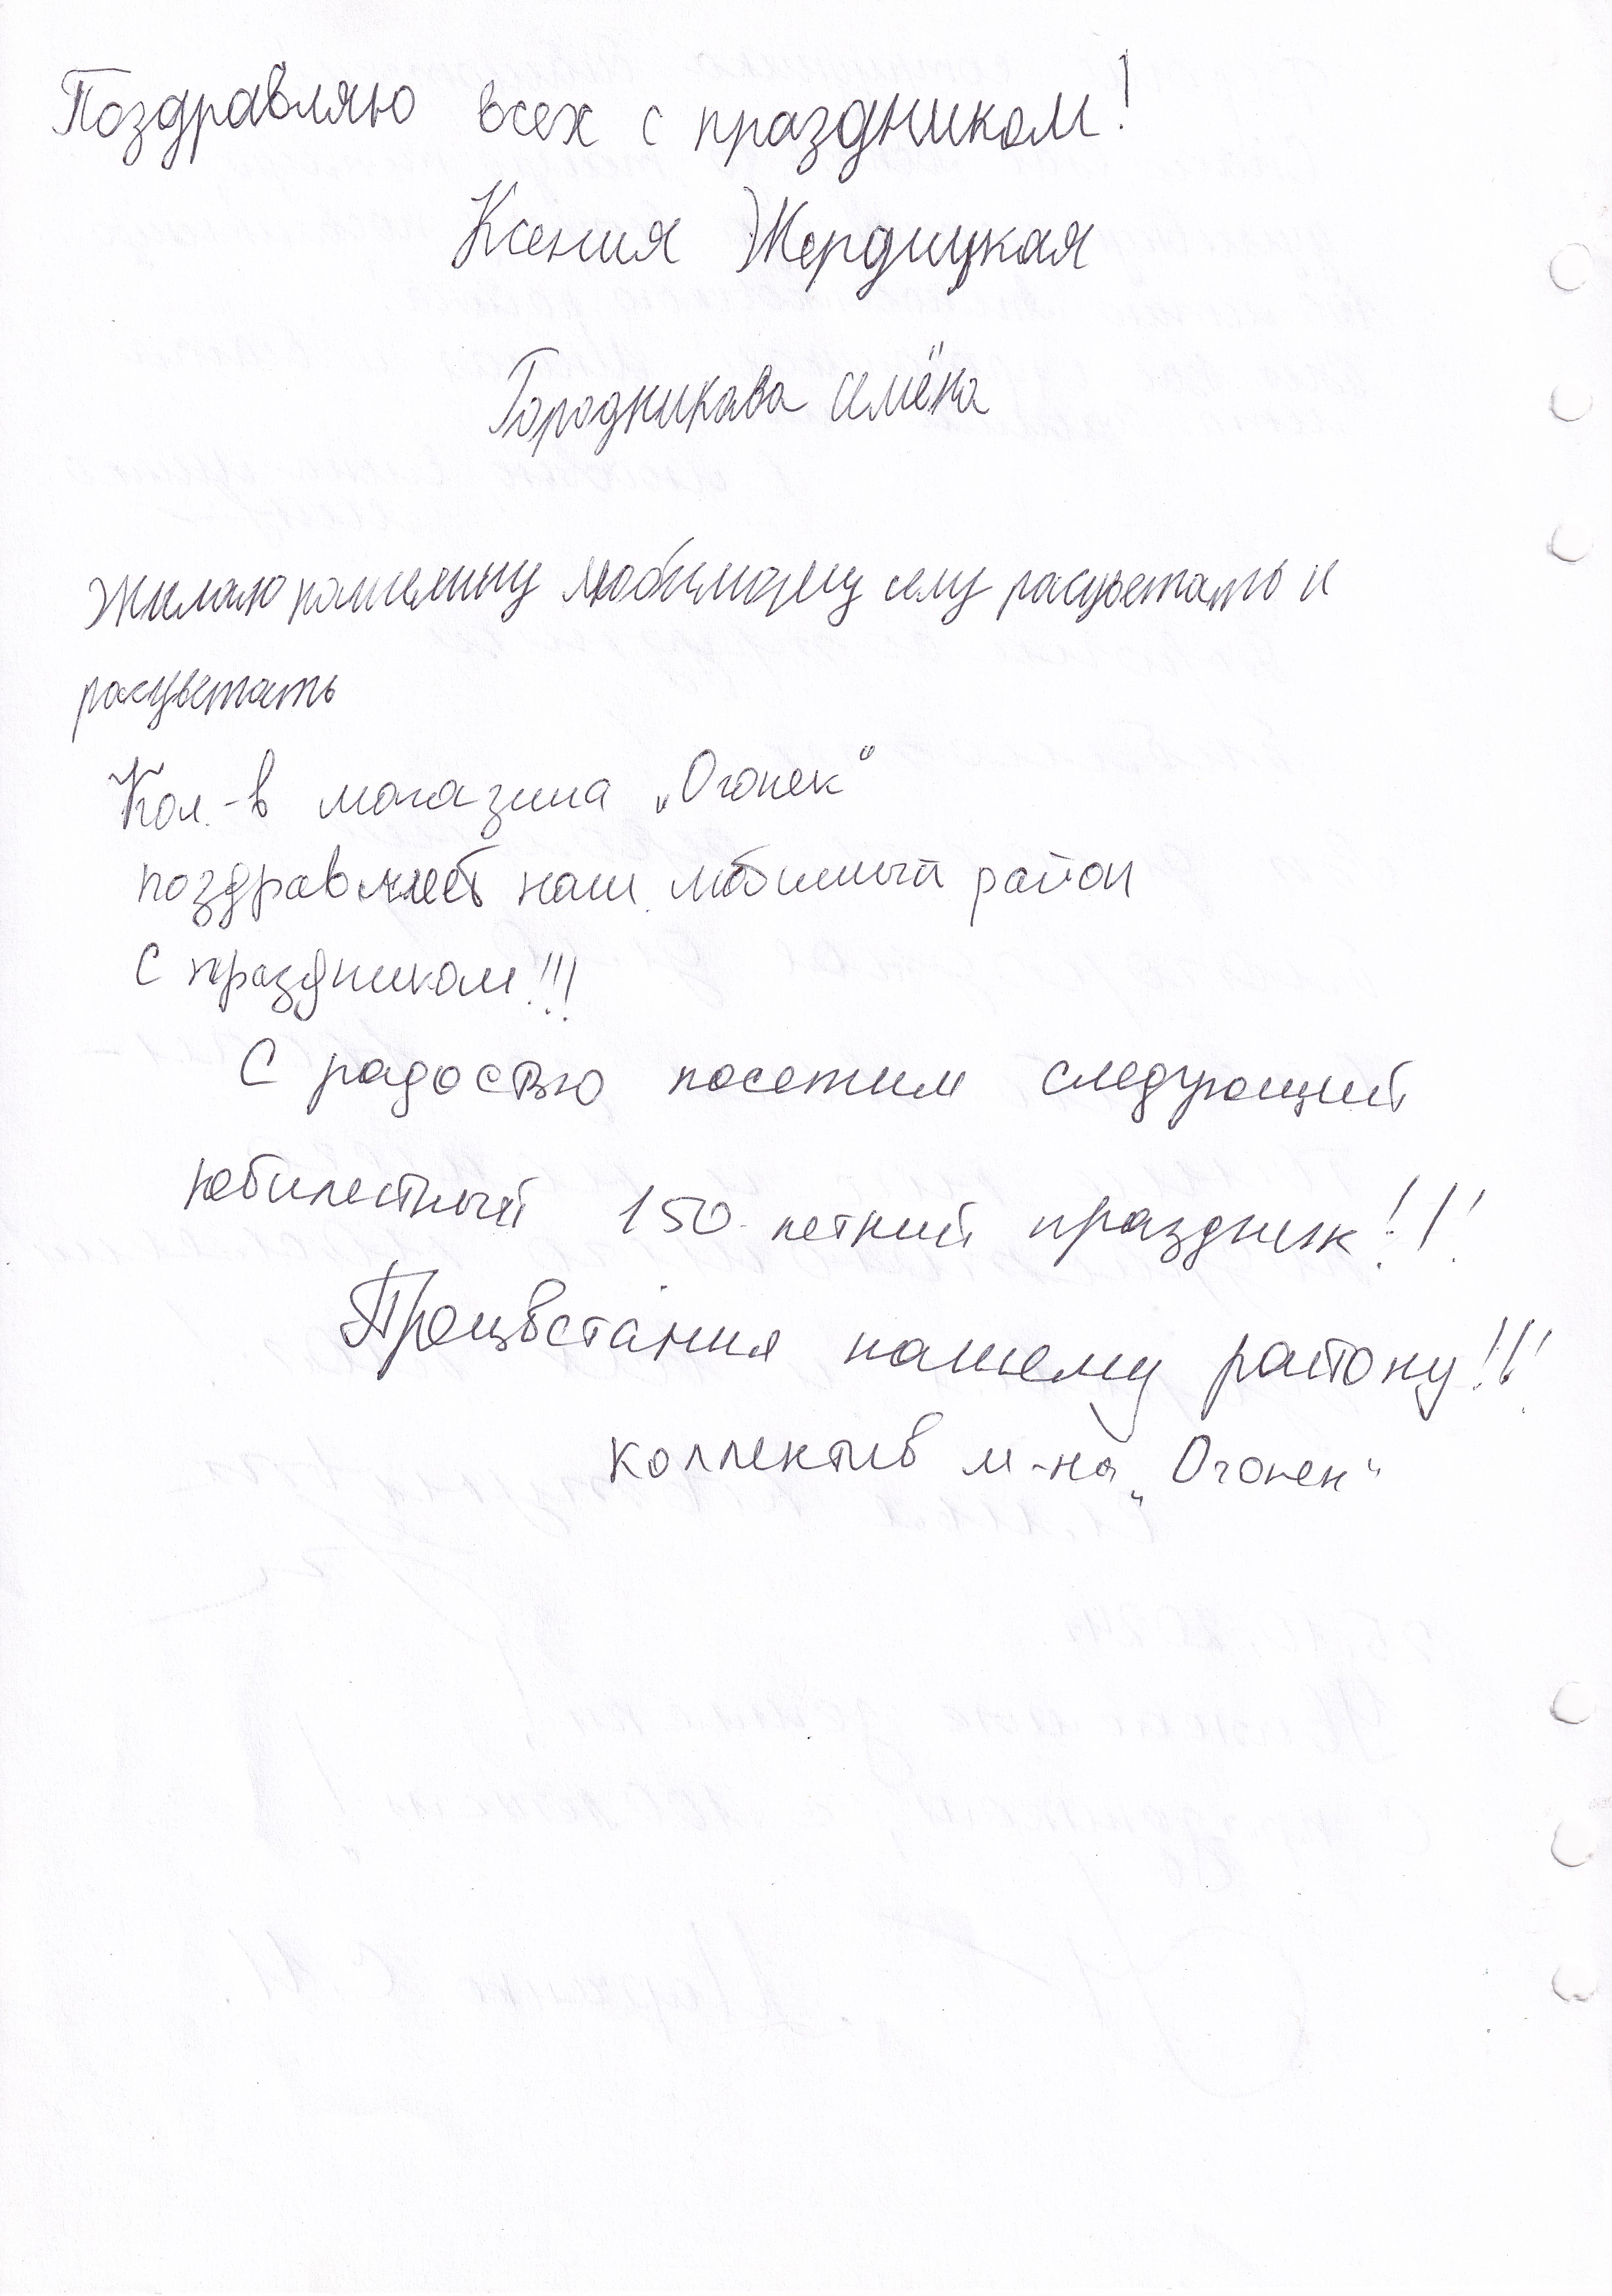 Поздравляю всех с праздником!
Ксения Жердицкая
Городникава Семёна
Жилаю нашему любимому селу расцветать и
расцветать
Кол.-в магазина „Огонек“
поздравляет наш любимый район
с праздником!!!
С радостью посетим следующий
юбилейный 150-летний праздник!!!
Процветания нашему району!!!
коллектив м-на „Огонек“